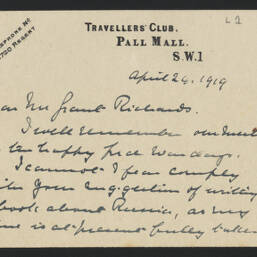 L 2
TELEPHONE No
2700 REGENT
TRAVELLERS' CLUB.
PALL MALL.
S.W.1
April 24, 1919
ear Mr Grant Richards.
I well remember our meet
the happy pre war days.
I cannot I fear comply
with your suggestion of writing
book about Russia, as my
time is at present fully taken